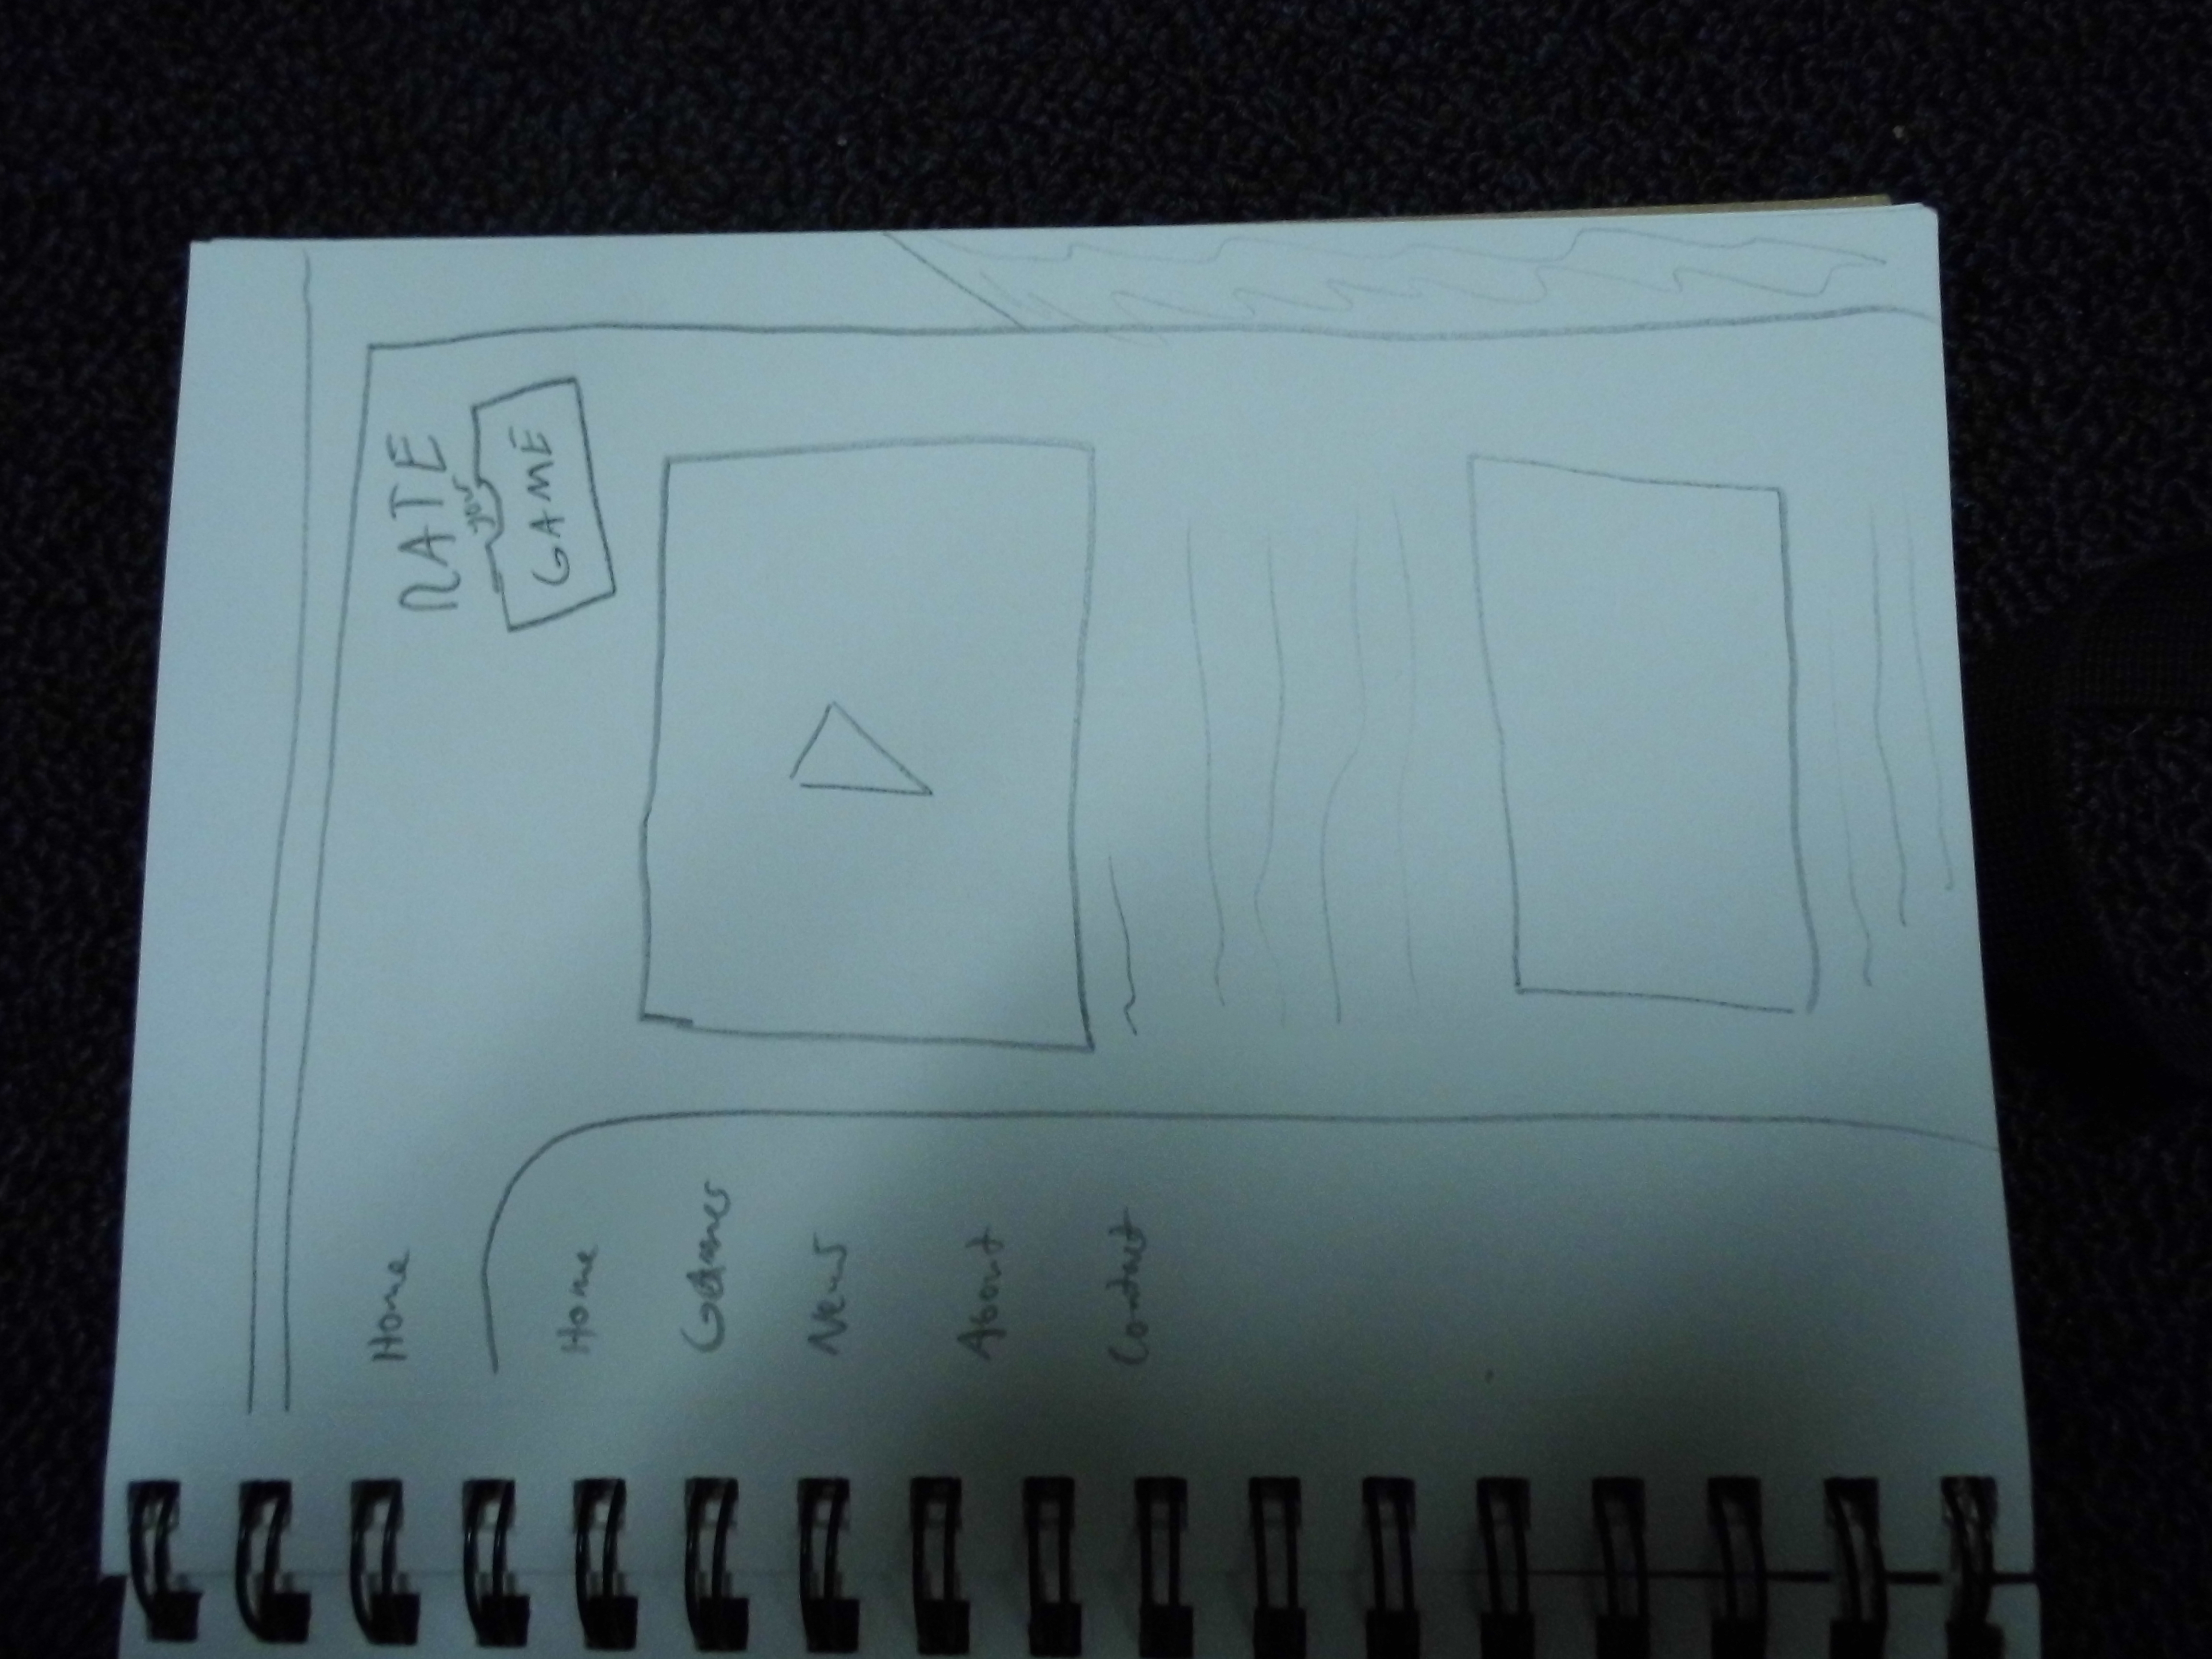 RATE
your
GAME
Home
Home
Games
News
About
Contact